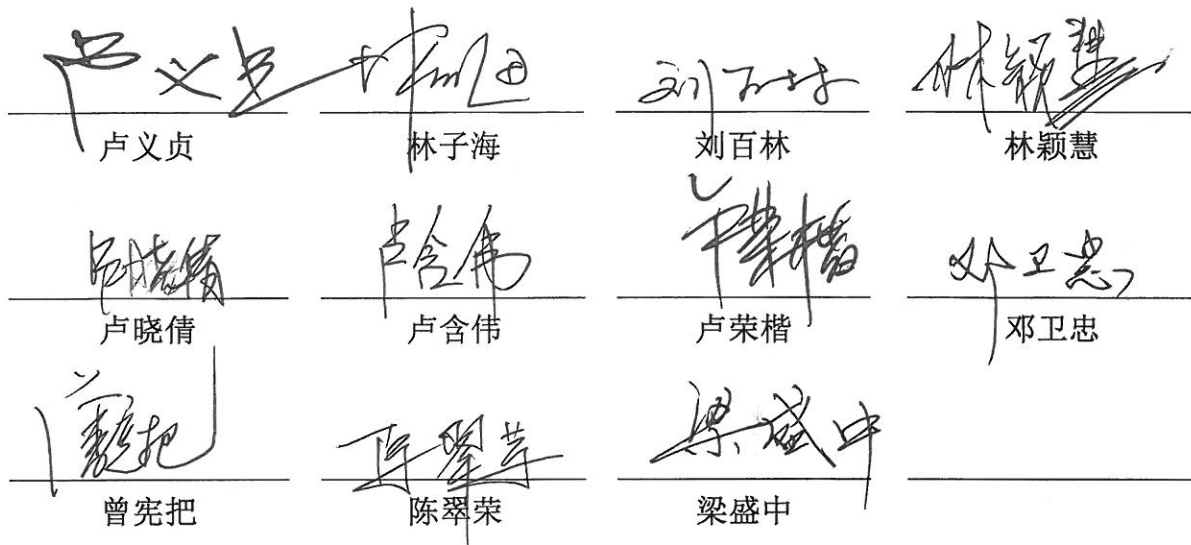 卢义贞 林子海 刘百林 林颖慧
卢义贞 林子海 刘百林 林颖慧
卢晓倩 卢含伟 卢荣楷 邓卫忠
卢晓倩 卢含伟 卢荣楷 邓卫忠
曾宪把 陈翠荣 梁盛中
曾宪把 陈翠荣 梁盛中